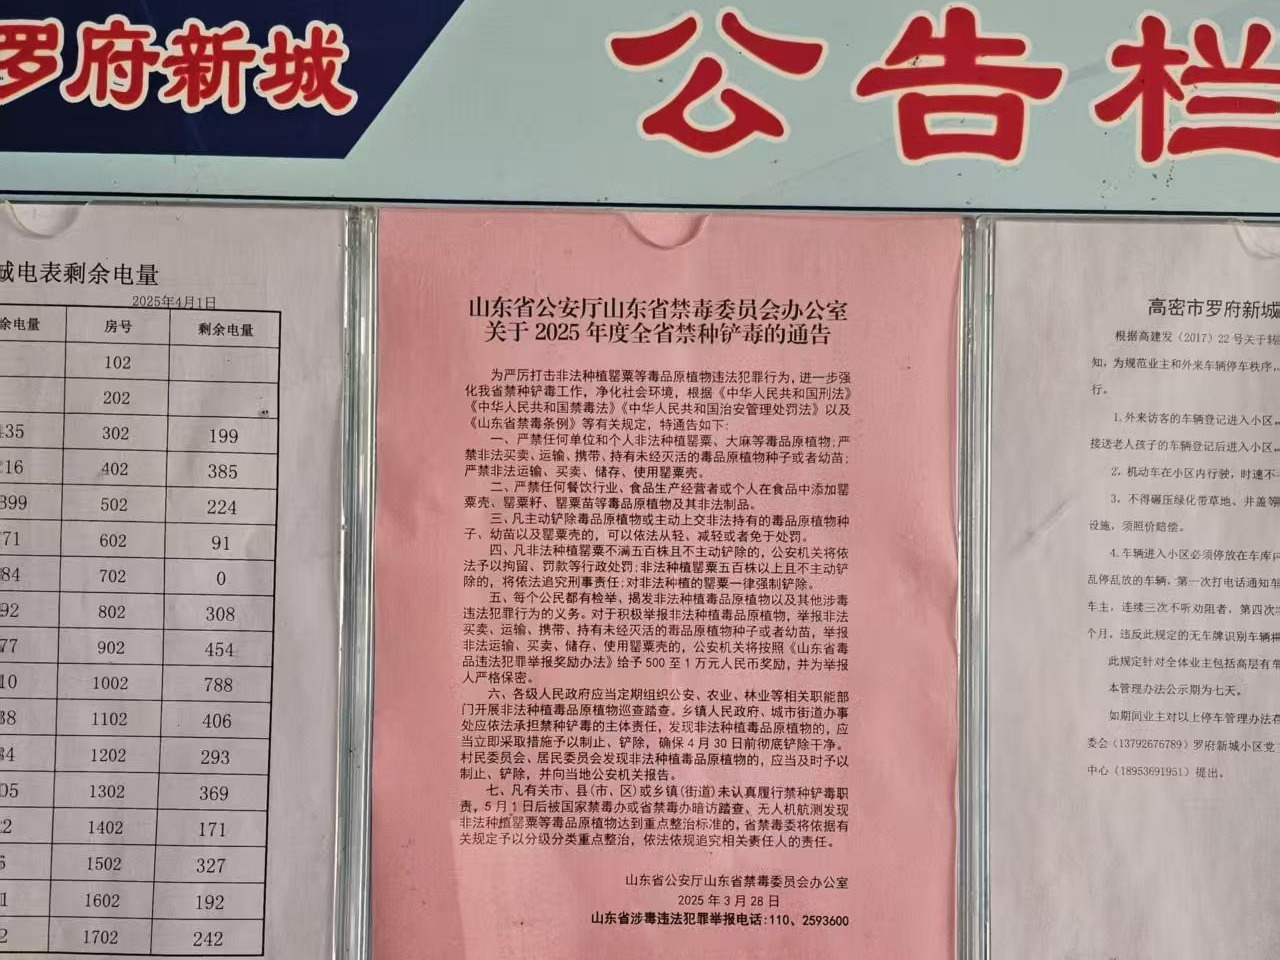 罗府新城
公告栏
城电表剩余电量
2025年4月1日
余电量 房号 剩余电量
102
202
435 302 199
216 402 385
899 502 224
71 602 91
84 702 0
92 802 308
77 902 454
10 1002 788
38 1102 406
34 1202 293
05 1302 369
2 1402 171
6 1502 327
1 1602 192
2 1702 242
山东省公安厅山东省禁毒委员会办公室
关于 2025 年度全省禁种铲毒的通告
为严厉打击非法种植罂粟等毒品原植物违法犯罪行为，进一步强
化我省禁种铲毒工作，净化社会环境，根据《中华人民共和国刑法》
《中华人民共和国禁毒法》《中华人民共和国治安管理处罚法》以及
《山东省禁毒条例》等有关规定，特通告如下：
一、严禁任何单位和个人非法种植罂粟、大麻等毒品原植物；严
禁非法买卖、运输、携带、持有未经灭活的毒品原植物种子或者幼苗；
严禁非法运输、买卖、储存、使用罂粟壳。
二、严禁任何餐饮行业、食品生产经营者或个人在食品中添加罂
粟壳、罂粟籽、罂粟苗等毒品原植物及其非法制品。
三、凡主动铲除毒品原植物或主动上交非法持有的毒品原植物种
子、幼苗以及罂粟壳的，可以依法从轻、减轻或者免于处罚。
四、凡非法种植罂粟不满五百株且不主动铲除的，公安机关将依
法予以拘留、罚款等行政处罚；非法种植罂粟五百株以上且不主动铲
除的，将依法追究刑事责任；对非法种植的罂粟一律强制铲除。
五、每个公民都有检举、揭发非法种植毒品原植物以及其他涉毒
违法犯罪行为的义务。对于积极举报非法种植毒品原植物，举报非法
买卖、运输、携带、持有未经灭活的毒品原植物种子或者幼苗，举报
非法运输、买卖、储存、使用罂粟壳的，公安机关将按照《山东省毒
品违法犯罪举报奖励办法》给予 500 至 1 万元人民币奖励，并为举报
人严格保密。
六、各级人民政府应当定期组织公安、农业、林业等相关职能部
门开展非法种植毒品原植物巡查踏查。乡镇人民政府、城市街道办事
处应依法承担禁种铲毒的主体责任，发现非法种植毒品原植物的，应
当立即采取措施予以制止、铲除，确保 4 月 30 日前彻底铲除干净。
村民委员会、居民委员会发现非法种植毒品原植物的，应当及时予以
制止、铲除，并向当地公安机关报告。
七、凡有关市、县(市、区)或乡镇(街道)未认真履行禁种铲毒职
责，5 月 1 日后被国家禁毒办或省禁毒办暗访踏查、无人机航测发现
非法种植罂粟等毒品原植物达到重点整治标准的，省禁毒委将依据有
关规定予以分级分类重点整治，依法依规追究相关责任人的责任。
山东省公安厅山东省禁毒委员会办公室
2025 年 3 月 28 日
山东省涉毒违法犯罪举报电话:110、2593600
高密市罗府新城
根据高建发（2017）22 号关于转
知，为规范业主和外来车辆停车秩序，
行。
1.外来访客的车辆登记进入小区，
接送老人孩子的车辆登记后进入小区，
2，机动车在小区内行驶，时速不
3，不得碾压绿化带草地、井盖等
设施，须照价赔偿。
4.车辆进入小区必须停放在车库
乱停乱放的车辆，第一次打电话通知车
车主，连续三次不听劝阻者，第四次
个月，违反此规定的无车牌识别车辆
此规定针对全体业主包括高层有车
本管理办法公示期为七天。
如期间业主对以上停车管理办法存
委会（13792676789）罗府新城小区党
中心（18953691951）提出。